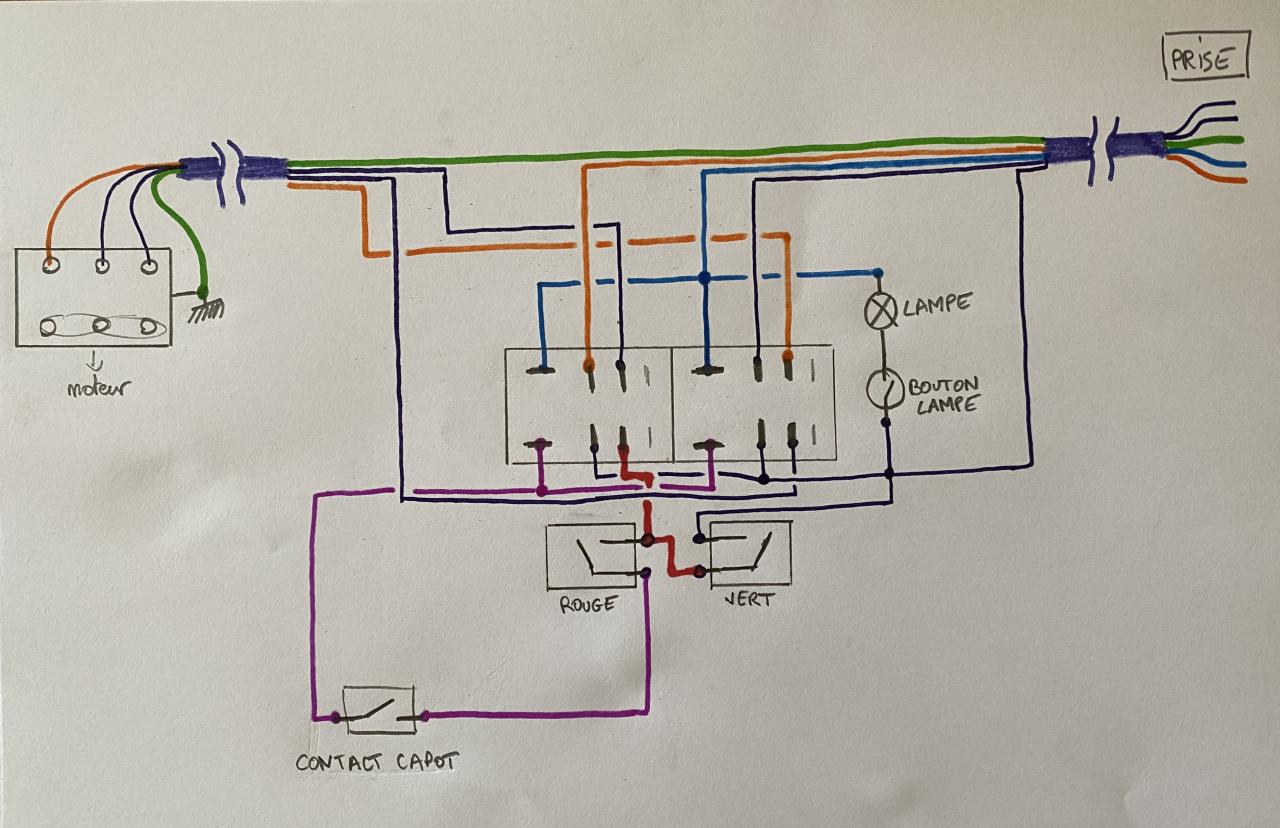 PRISE
LAMPE
BOUTON
LAMPE
moteur
ROUGE
VERT
CONTACT CAPOT